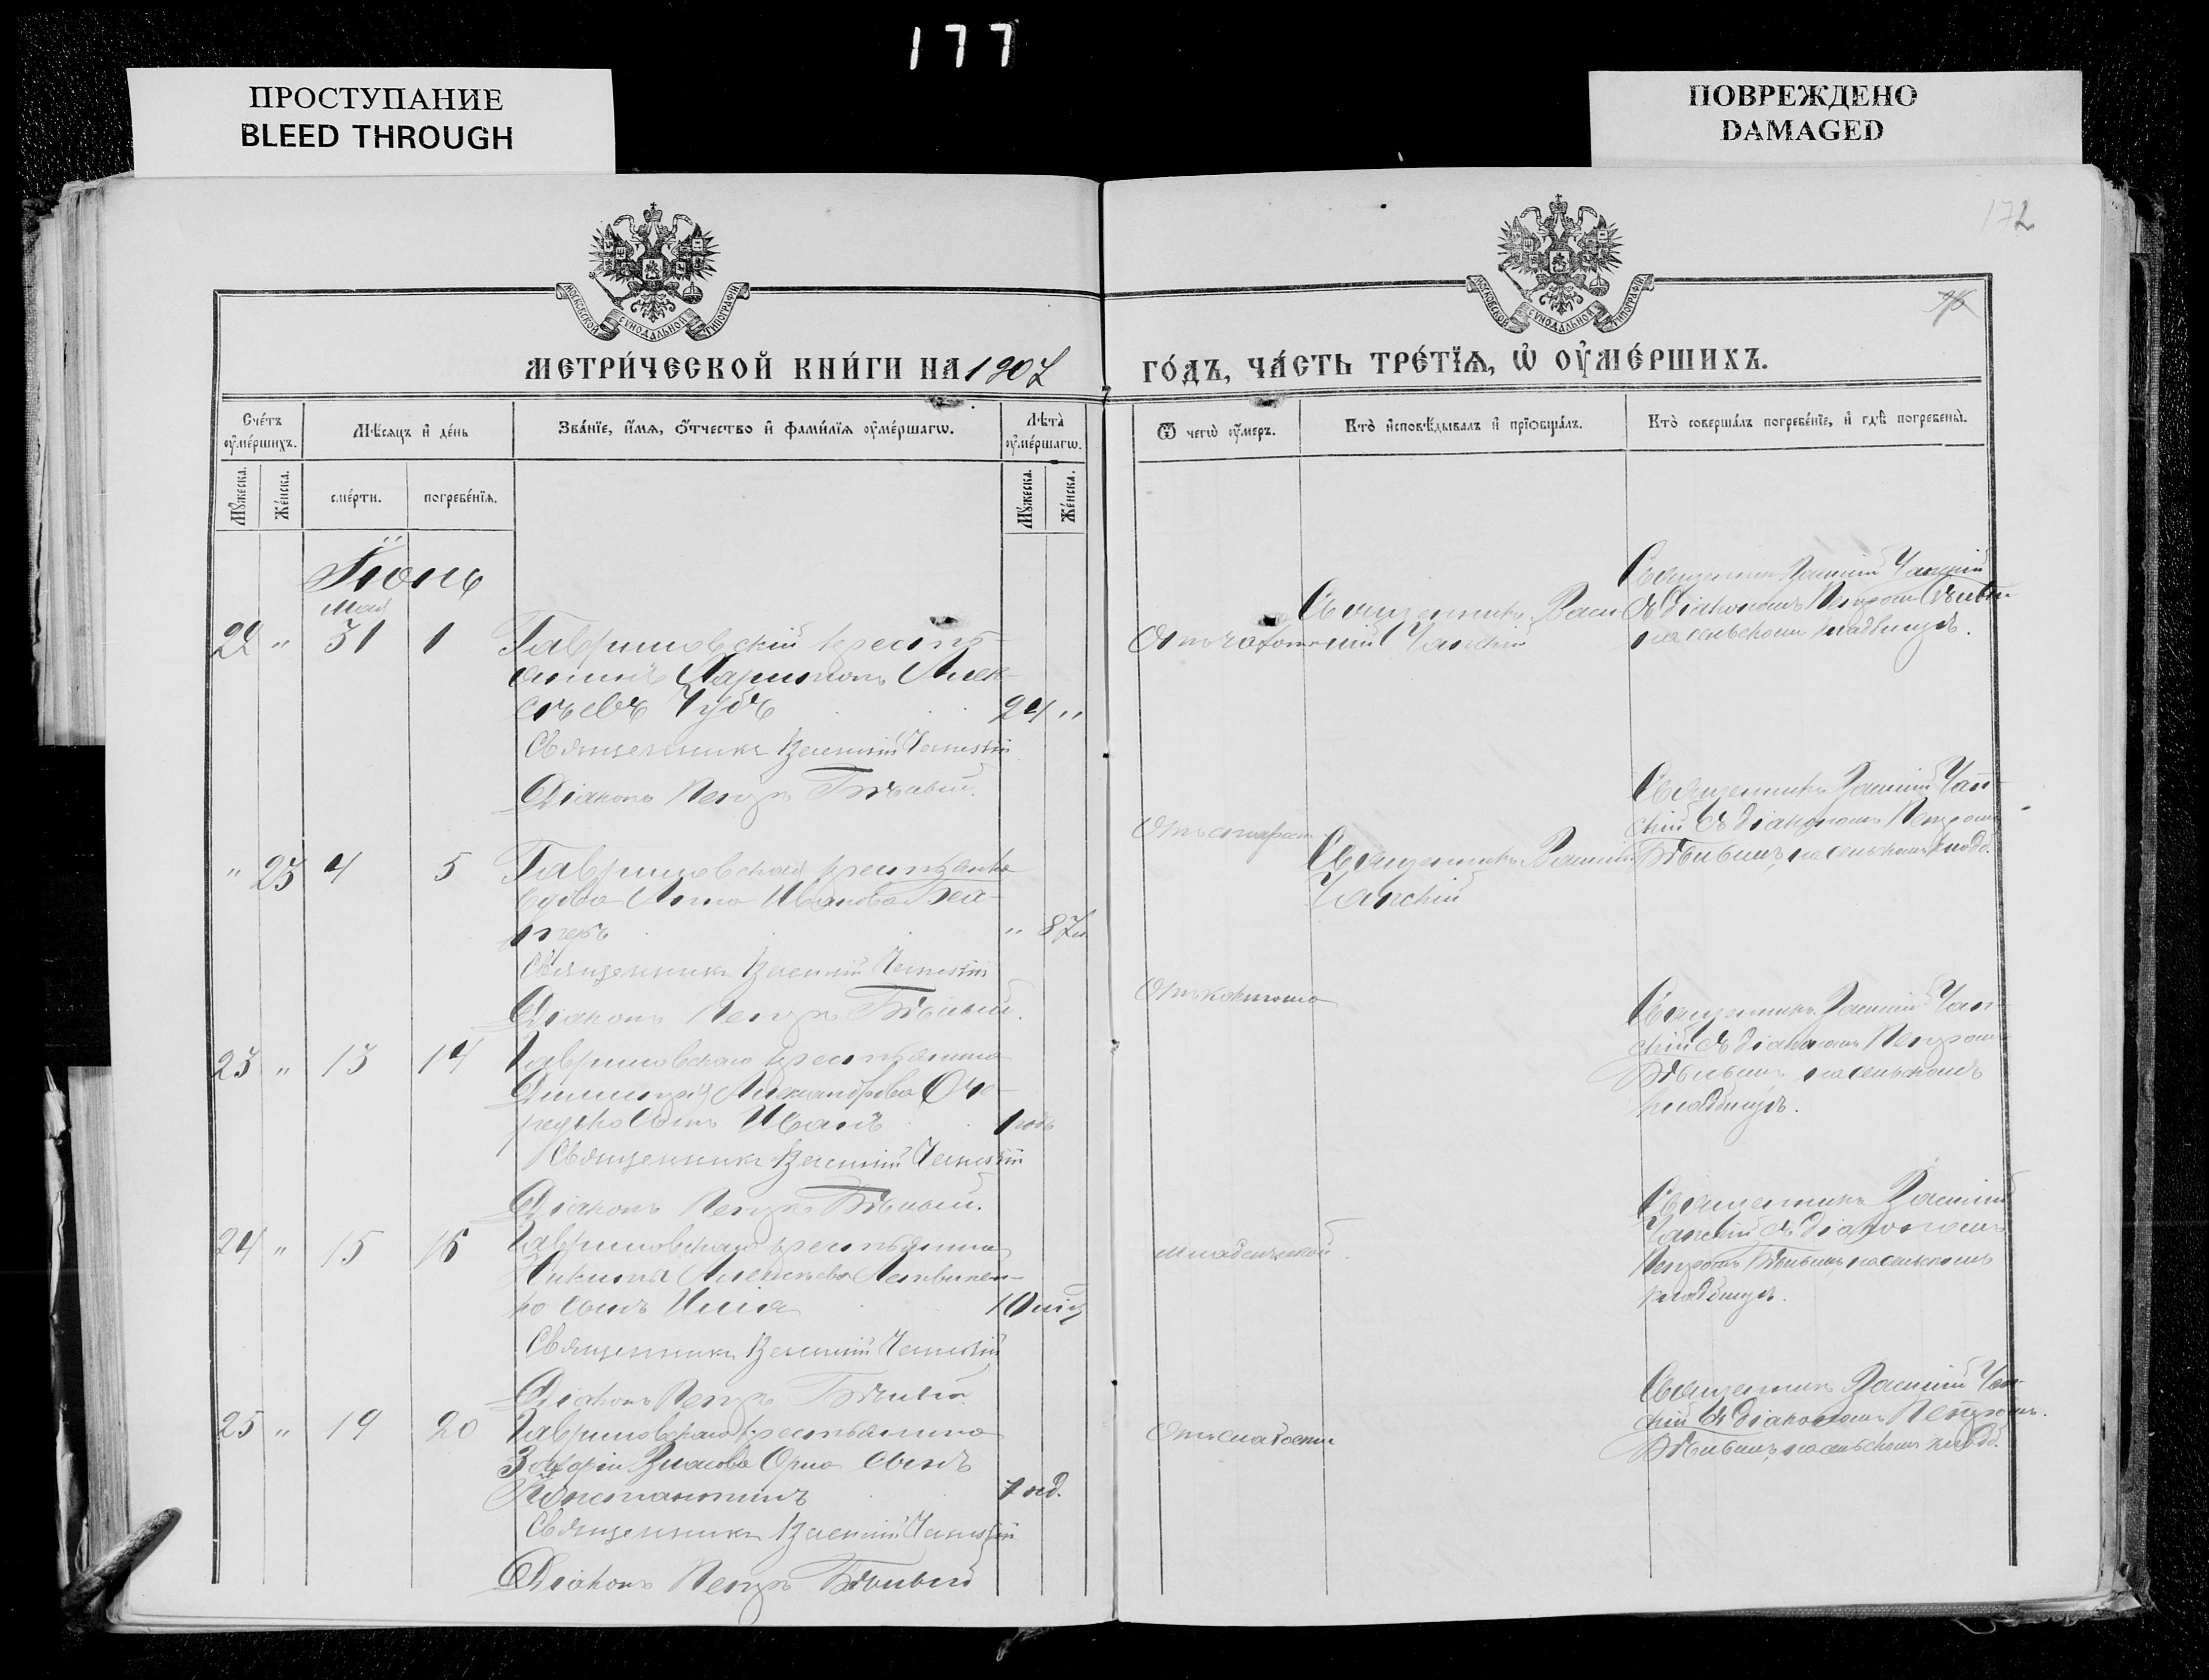 177
ПРОСТУПАНИЕ
BLEED THROUGH
ПОВРЕЖДЕНО
DAMAGED
172
МОСКОВСКОЙ СѴНОДАЛЬНОЙ ТИПОГРАФІИ
МОСКОВСКОЙ СѴНОДАЛЬНОЙ ТИПОГРАФІИ
МЕТРИ́ЧЕСКОЙ КНИ́ГИ НА 1907
ГО́ДЪ, ЧА́СТЬ ТРЕ́ТЇѦ, Ѡ҆ ОУ҆МЕ́РШИХЪ.
Сче́тъ оу҆ме́ршихъ.
Мѣ́сяцъ и҆ де́нь
Зва́нїе, и҆́мѧ, ѻ҆́тчество и҆ фами́лїѧ оу҆ме́ршагѡ.
Лѣ́та оу҆ме́ршагѡ.
Ѿ чегѡ̀ оу҆́меръ.
Кто̀ и҆сповѣ́дывалъ и҆ прїѡбща́лъ.
Кто̀ соверша́лъ погребе́нїе, и҆ гдѣ̀ погребены̀.
Мꙋ́жеска.
Же́нска.
сме́рти.
погребе́нїѧ.
Мꙋ́жеска.
Же́нска.
Іюнь
мая
22 " 31 1 Гавриловскій кресть-
янинъ Харитонъ Алек-
сѣевъ Чубъ 24 "
Священникъ Василій Чапскій
Діаконъ Петръ Бѣлый.
Отъ чахотки
Священникъ Васи-
лій Чапскій
Священникъ Василій Чапскій
съ діакономъ Петромъ Бѣлымъ
на сельскомъ кладбищѣ.
" 23 4 5 Гавриловская крестьянка
вдова Анна Иванова
" 87
Священникъ Василій Чапскій
Діаконъ Петръ Бѣлый.
Отъ старости
Священникъ Василій
Чапскій
Священникъ Василій Чап-
скій съ діакономъ Петромъ
Бѣлымъ, на сельскомъ кладб.
23 " 13 14 Гавриловскаго крестьянина
Димитрія Александрова
сынъ Иванъ 1 годъ
Священникъ Василій Чапскій
Діаконъ Петръ Бѣлый.
Отъ коклюша
Священникъ Василій Чап-
скій съ діакономъ Петромъ
Бѣлымъ, на сельскомъ
кладбищѣ.
24 " 15 16 Гавриловскаго крестьянина
Никиты Алексѣева Литвинен-
ко сынъ Илія 10 міс
Священникъ Василій Чапскій
Діаконъ Петръ Бѣлый
младенческой.
Священникъ Василій
Чапскій съ діакономъ
Петромъ Бѣлымъ, на сельскомъ
кладбищѣ.
25 " 19 20 Гавриловскаго крестьянина
Захарія Власова сынъ
Константинъ
Священникъ Василій Чапскій
Діаконъ Петръ Бѣлый
Отъ слабости
Священникъ Василій Чап-
скій съ діакономъ Петромъ
Бѣлымъ, на сельскомъ кладб.